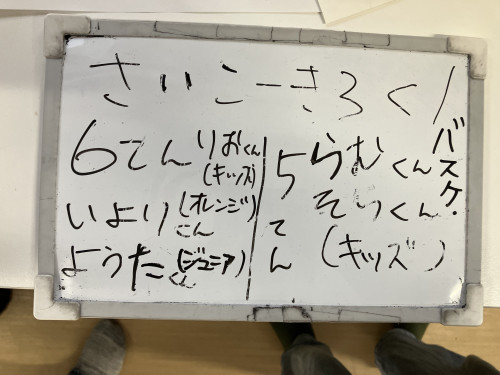 さいこーきろく!
バスケ.
6てんりおくん
(キッズ)
いより(オレンジ)
こん
ようた(ジュニア)
くん
5てん
らむくん
そらくん
(キッズ)